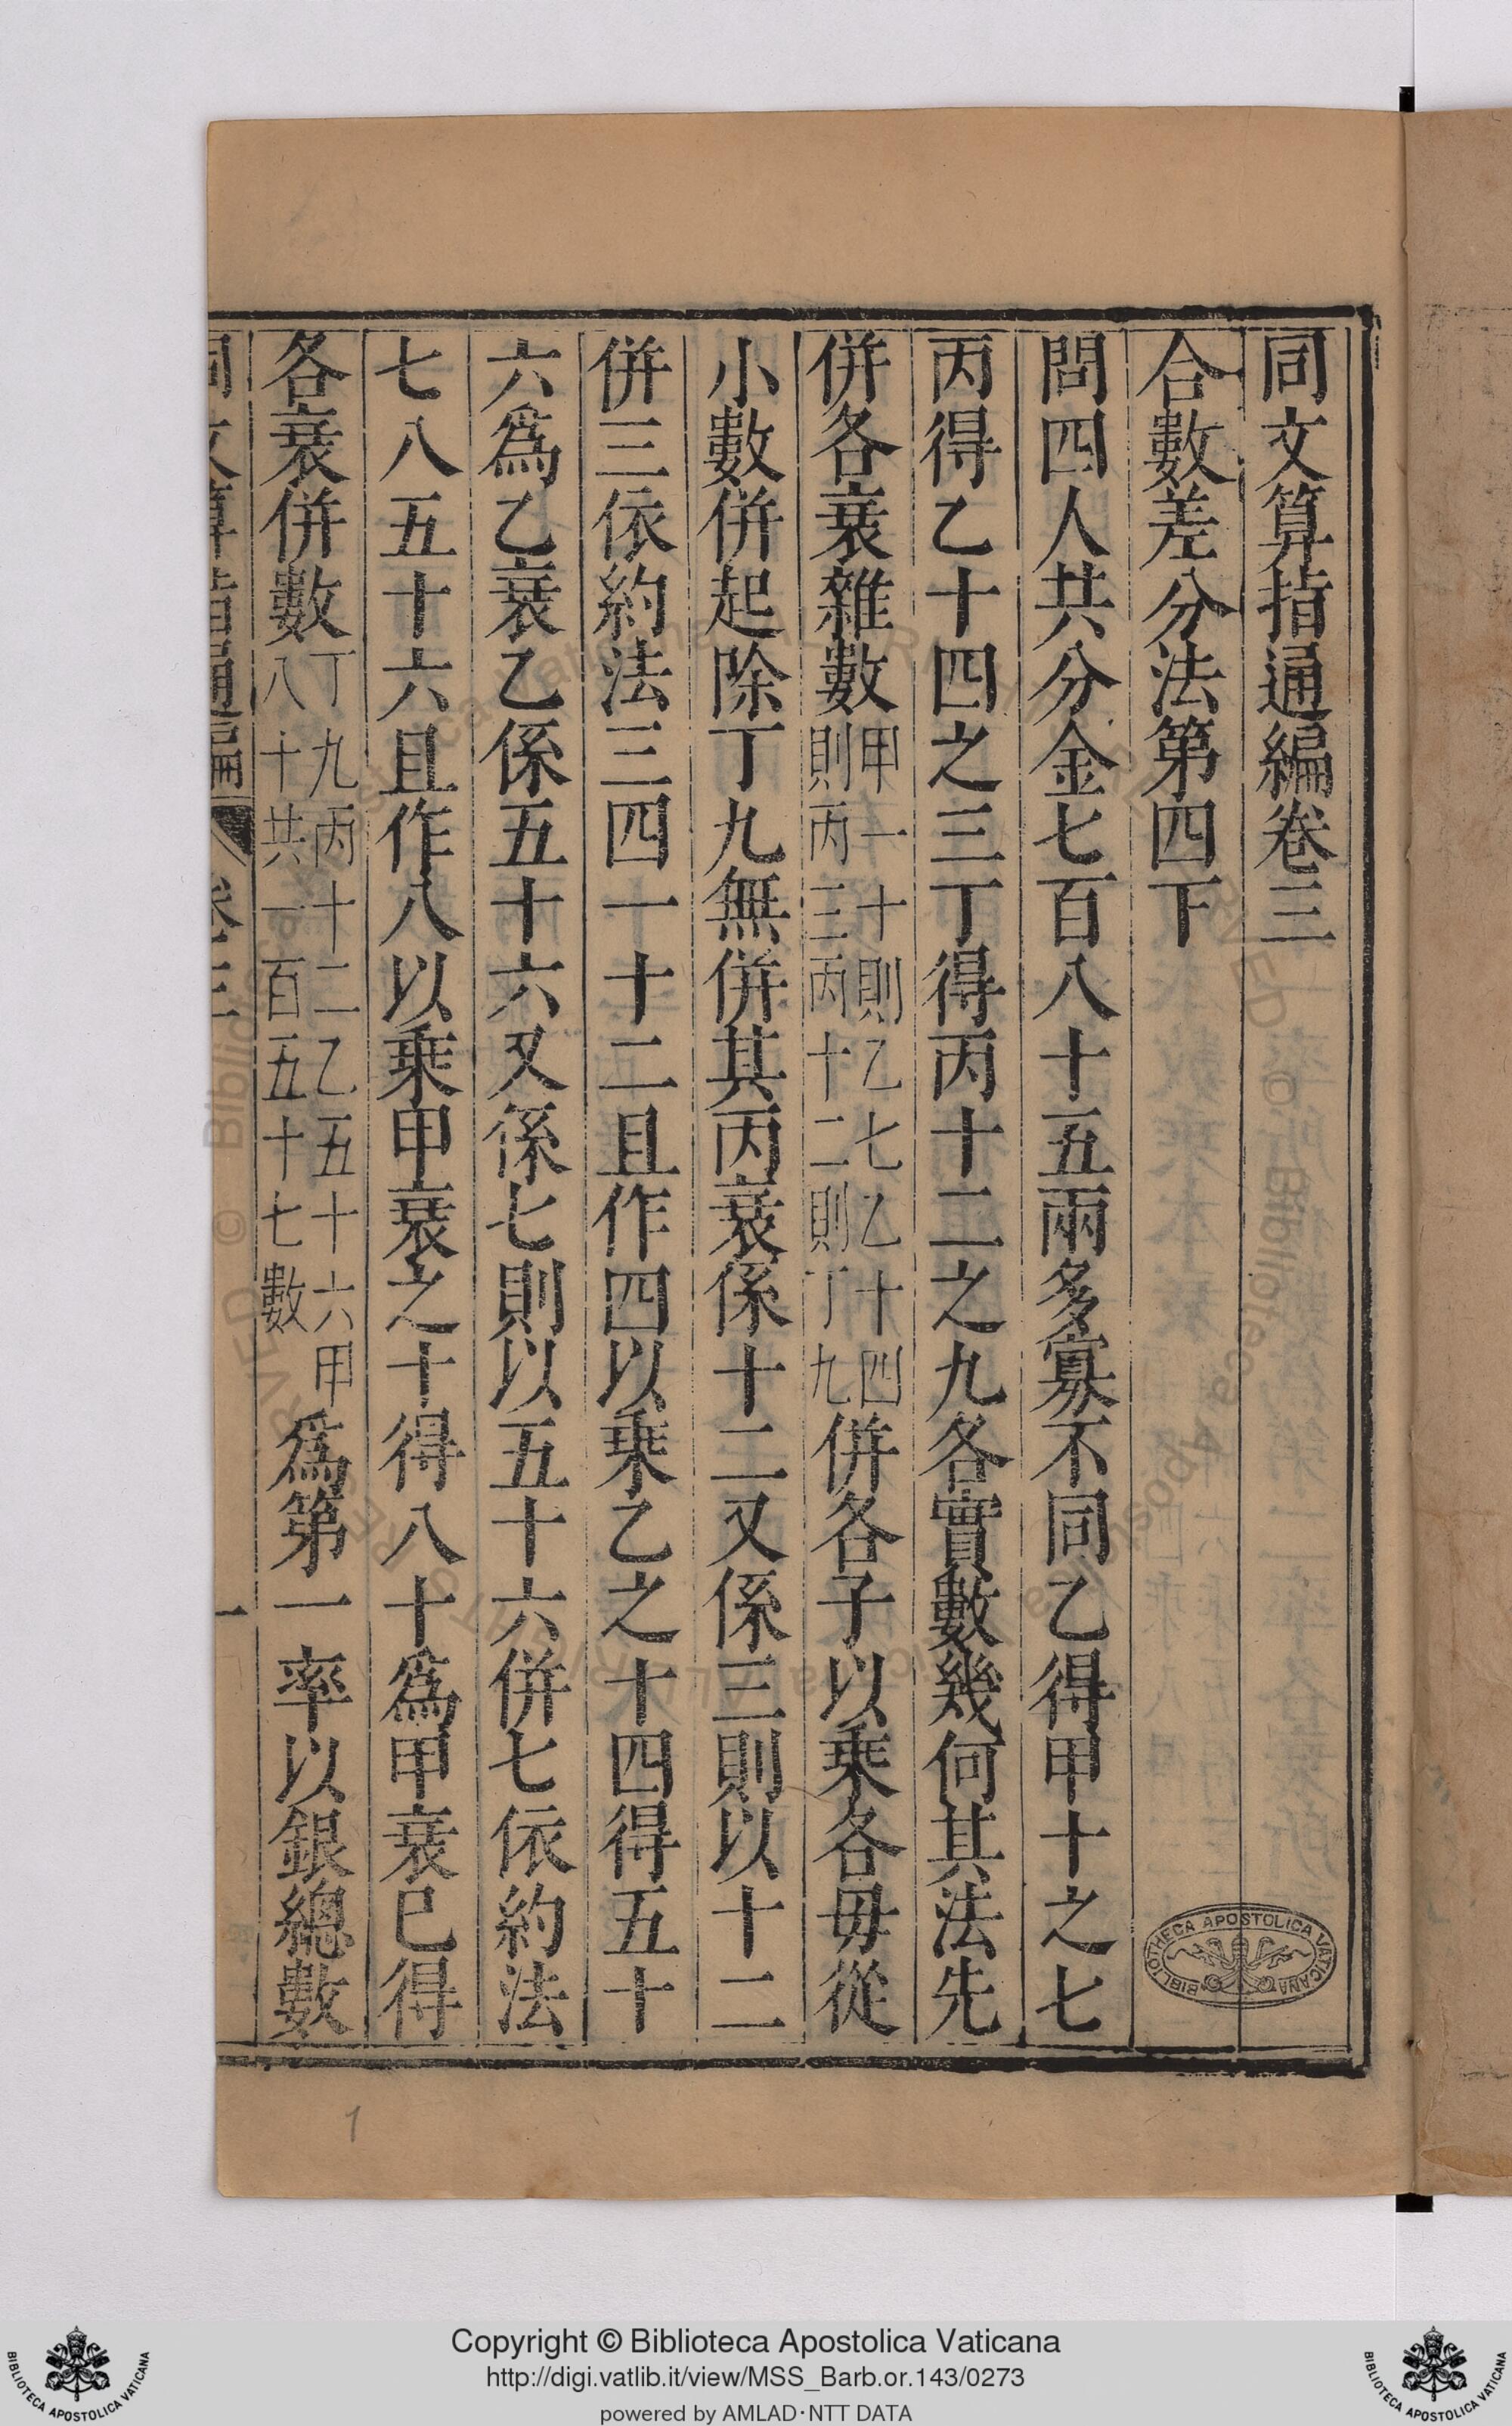 同文算指通編卷三
合數差分法第四下
問四人共分金七百八十五兩多寡不同乙得甲十之七
丙得乙十四之三丁得丙十二之九各實數幾何其法先
併各衰雜數甲一十則乙七乙十四則丙三丙十二則丁九併各子以乘各毋從
小數併起除丁九無併其丙衰係十二又係三則以十二
併三依約法三四一十二且作四以乘乙之十四得五十
六爲乙衰乙係五十六又係七則以五十六併七依約法
七八五十六且作八以乘甲衰之十得八十爲甲衰巳得
各衰併數丁九丙十二乙五十六甲八十共一百五十七數爲第一率以銀總數
同文算指通編 卷三 一
BIBLIOTHECA APOSTOLICA VATICANA
1
Copyright © Biblioteca Apostolica Vaticana
http://digi.vatlib.it/view/MSS_Barb.or.143/0273
powered by AMLAD·NTT DATA
BIBLIOTECA APOSTOLICA VATICANA
BIBLIOTECA APOSTOLICA VATICANA